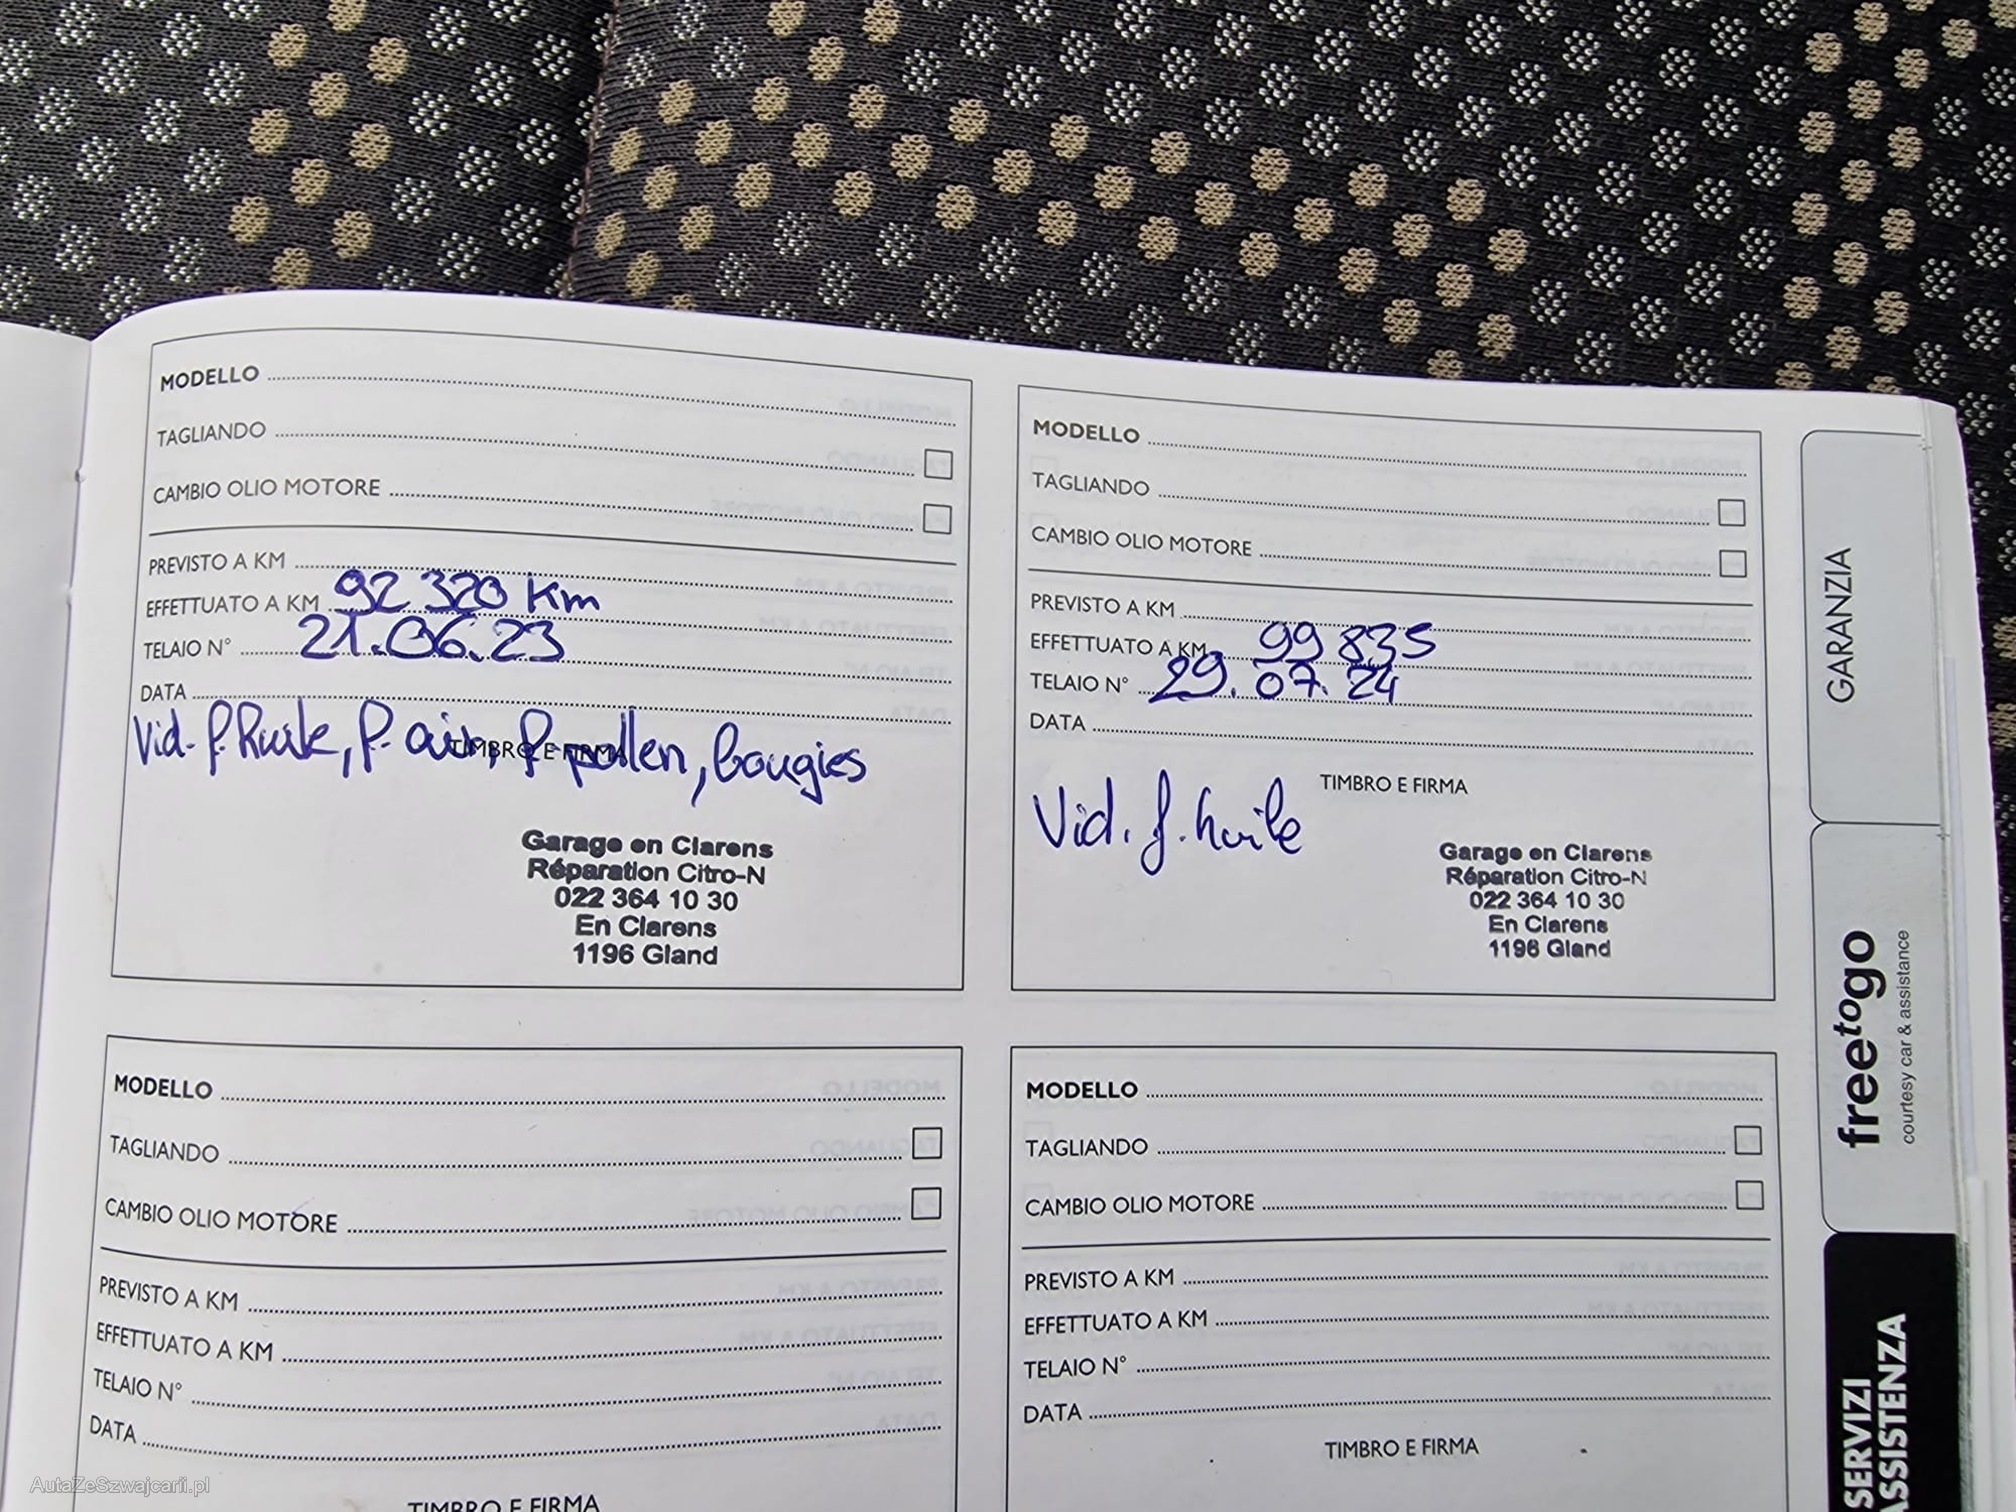 MODELLO
TAGLIANDO
CAMBIO OLIO MOTORE
PREVISTO A KM
EFFETTUATO A KM 92 320 Km
TELAIO N° 21.06.23
DATA
Vid. f. Huile, f. air, f. pollen, bougies
TIMBRO E FIRMA
Garage en Clarens
Réparation Citro-N
022 364 10 30
En Clarens
1196 Gland
MODELLO
TAGLIANDO
CAMBIO OLIO MOTORE
PREVISTO A KM
EFFETTUATO A KM 99 835
TELAIO N° 29.07.24
DATA
TIMBRO E FIRMA
Vid. f. huile
Garage en Clarens
Réparation Citro-N
022 364 10 30
En Clarens
1196 Gland
MODELLO
TAGLIANDO
CAMBIO OLIO MOTORE
PREVISTO A KM
EFFETTUATO A KM
TELAIO N°
DATA
TIMBRO E FIRMA
MODELLO
TAGLIANDO
CAMBIO OLIO MOTORE
PREVISTO A KM
EFFETTUATO A KM
TELAIO N°
DATA
TIMBRO E FIRMA
GARANZIA
freetogo
courtesy car & assistance
SERVIZI
ASSISTENZA
AutaZeSzwajcarii.pl